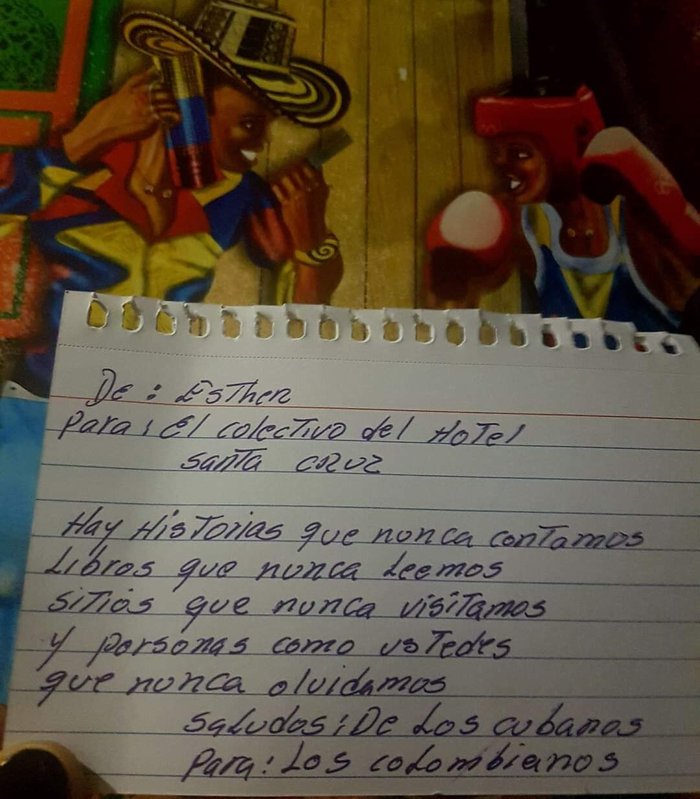 De : Esther
Para: El colectivo del Hotel
Santa Cruz
Hay Historias que nunca contamos
Libros que nunca Leemos
Sitios que nunca visitamos
y personas como ustedes
que nunca olvidamos
Saludos: De Los cubanos
Para: Los colombianos